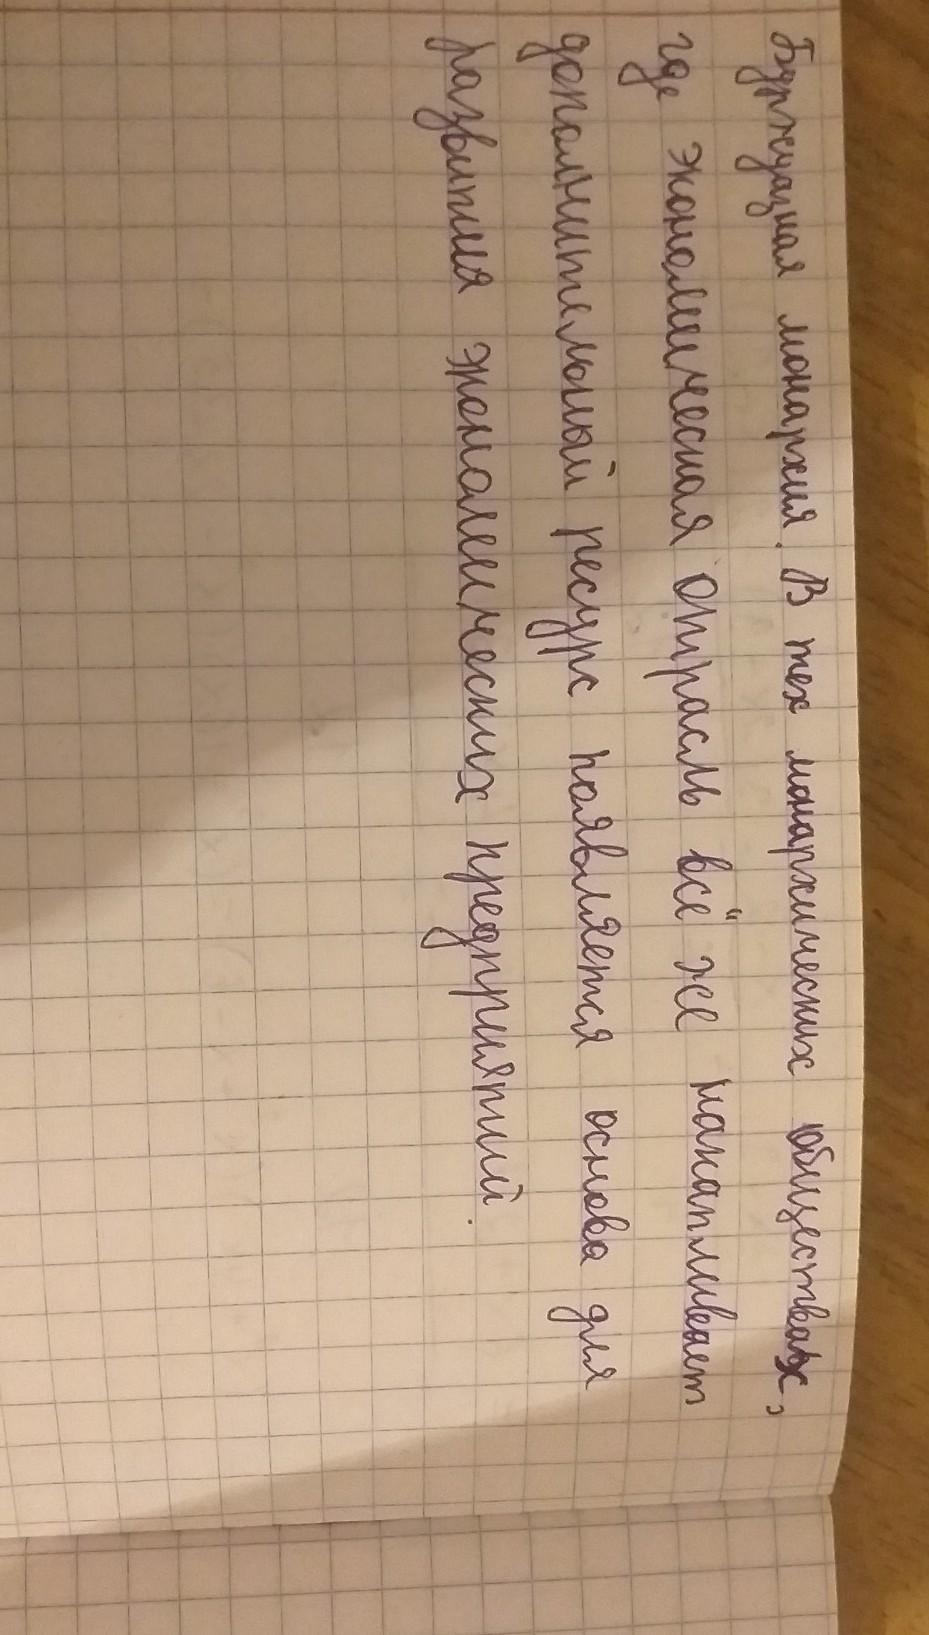 Буржуазная монархия. В тех монархических обществах,
где экономическая отрасль всё же накапливает
дополнительный ресурс появляется основа для
развития экономических предприятий.